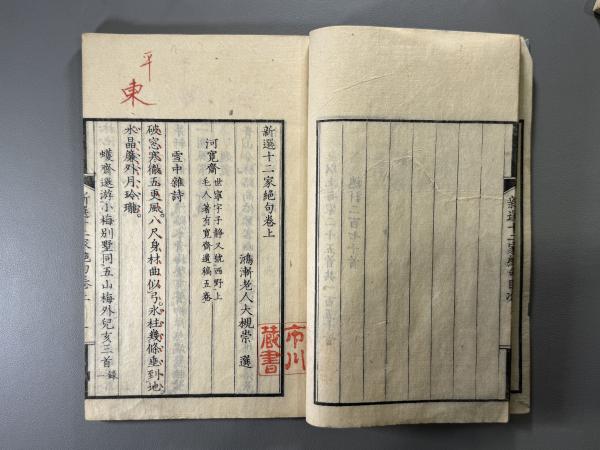 新選十二家絕句卷上
鴻漸老人大槻崇 選
河寬齋 世寧字子靜又號西野上
毛人著有寬齋遺稿五卷
雪中雜詩
破窓寒徹五更風。八尺身材曲似弓。氷柱幾條垂到地
水晶簾外月玲瓏。
蠖齋選游小梅別墅同五山梅外兒亥三首 錄一
平
東
市川
藏書
新選十二家絕句